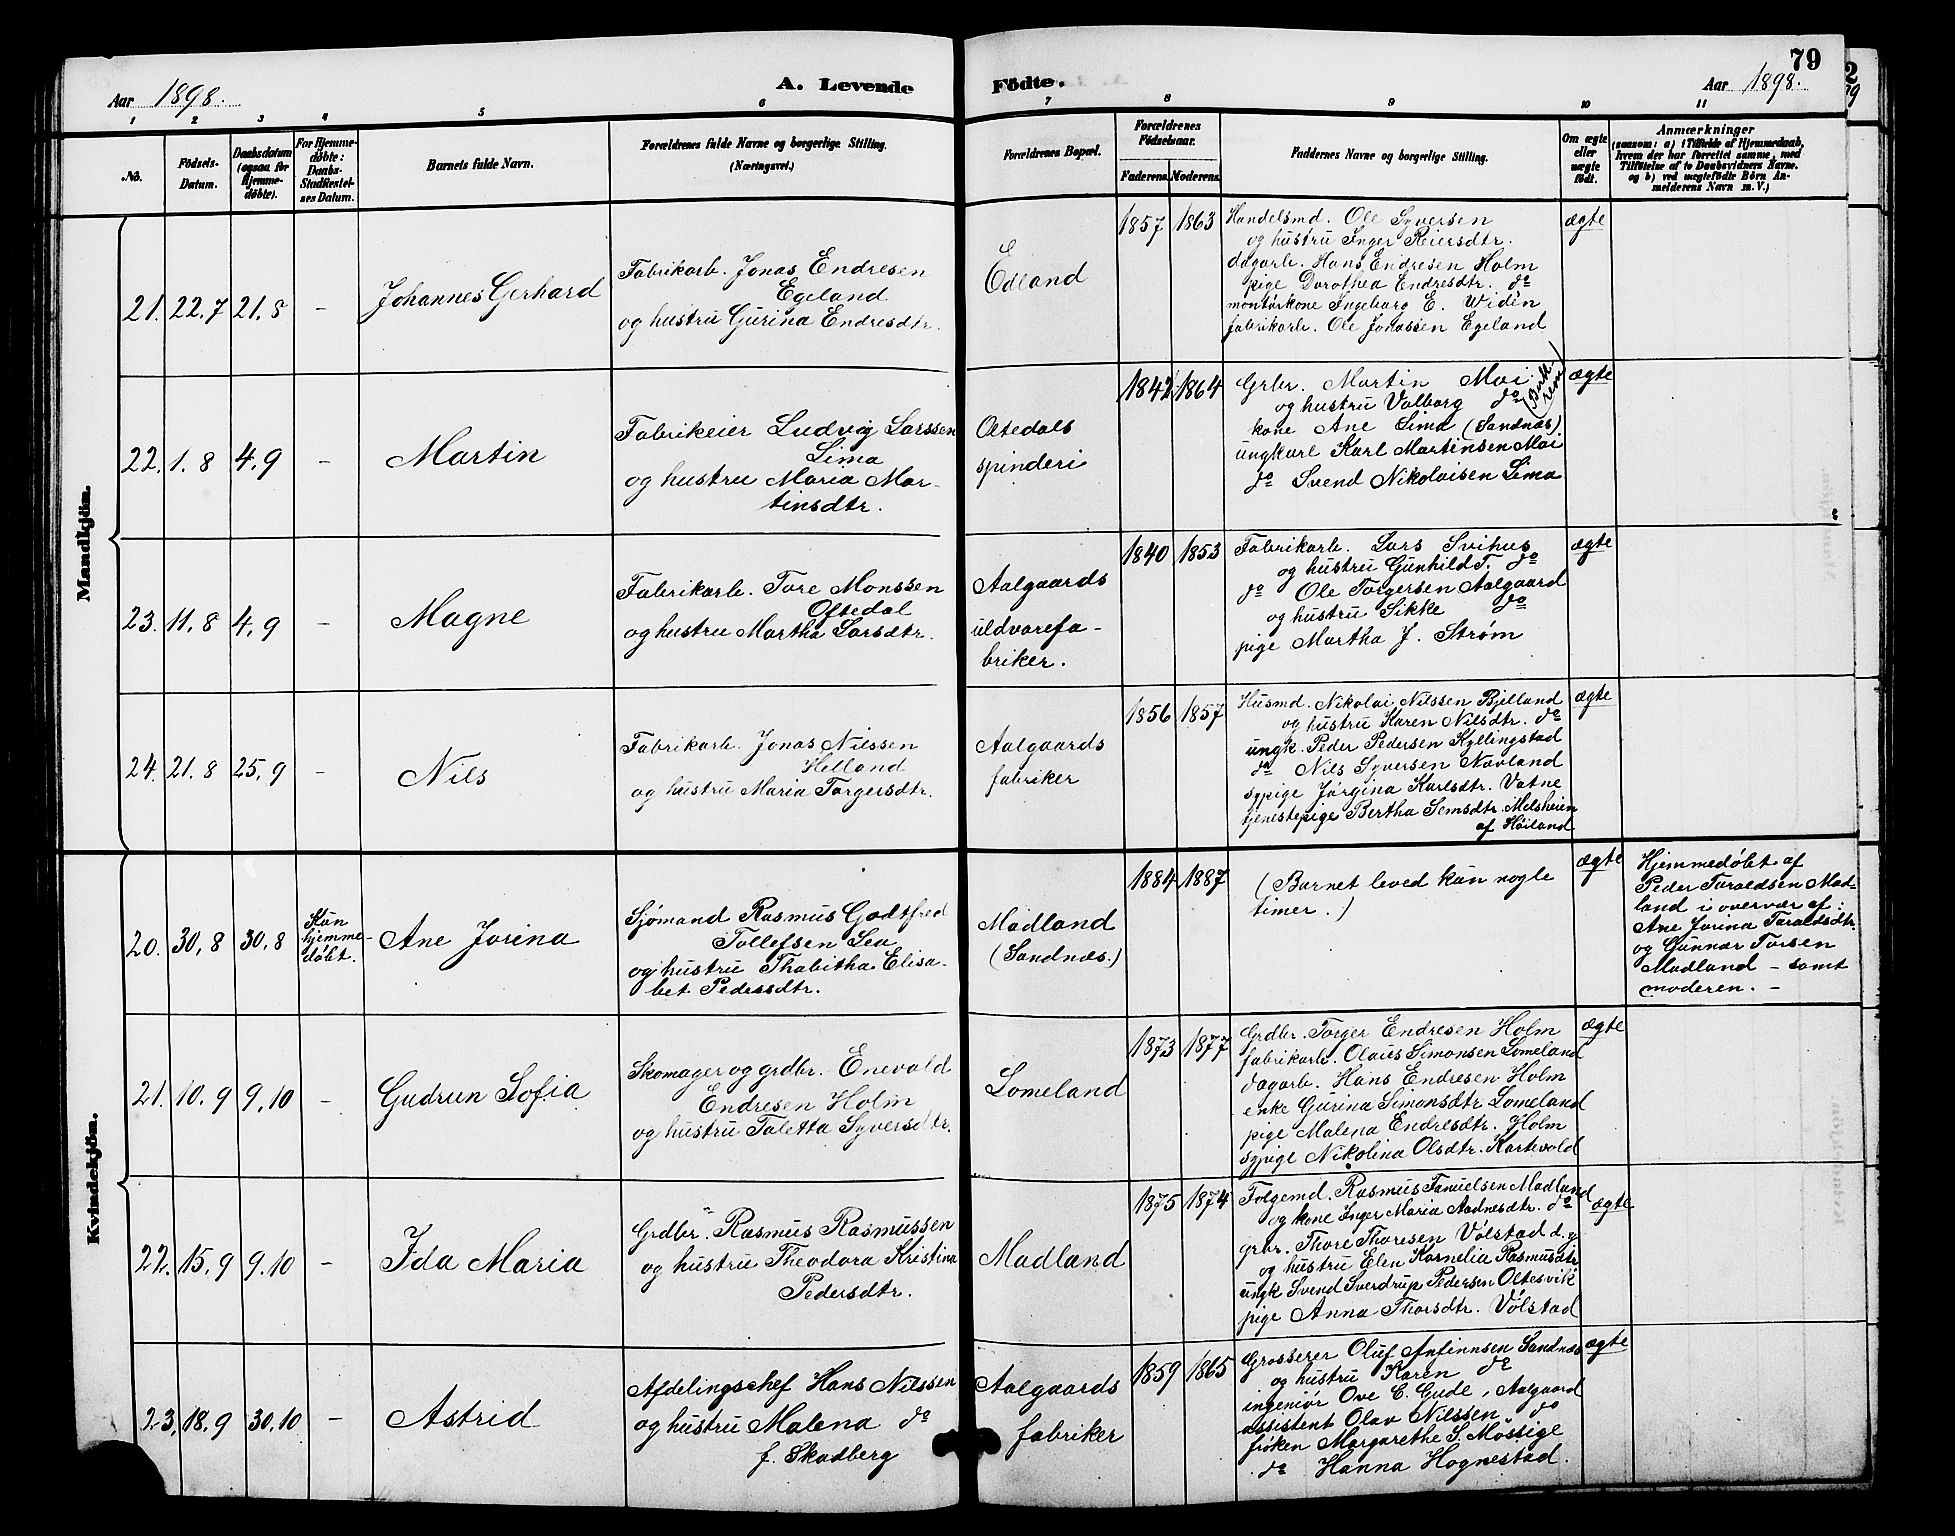 79
Aar 1898. A. Levende Födte. Aar 1898.
1 2 3 4 5 6 7 8 9 10 11
No.
Födsels-
Datum.
Daabsdatum
(ogsaa for
Hjemme-
döbte).
For Hjemme-
döbte:
Daabs-
Stadfæstel-
ses Datum.
Barnets fulde Navn.
Forældrenes fulde Navne og borgerlige Stilling.
(Næringsvei.)
Forældrenes Bopæl.
Forældrenes
Födselsaar.
Faderens. Moderens.
Faddernes Navne og borgerlige Stilling.
Om ægte
eller
uægte
födt.
Anmærkninger
(saasom: a) i Tilfælde af Hjemmedaab,
hvem der har forrettet samme, med
Tilföielse af to Daabsvidners Navne.
og b) ved uægtefödte Börn An-
melderens Navn m. V.)
Mandkjön.
21. 22.7 21.8 - Johannes Gerhard
Fabrikarb. Jonas Endresen
Egeland
og hustru Gurina Endresdtr.
Edland
1857 1863
Handelsmd. Ole Syversen
og hustru Inger Reiersdtr.
dagarb. Hans Endresen Holm
pige Dorothea Endresdtr. do
montørkone Ingeborg E. Widèn
fabrikarb. Ole Jonassen Egeland
ægte
22. 1.8 4.9 - Martin
Fabrikeier Ludvig Larssen
Lima
og hustru Maria Mar-
tinsdtr.
Oltedals
spinderi
1842 1864
Grbr. Martin Moi
og hustru Valborg do (Birk-
rem)
kone Ane Lima (Sandnæs)
ungkarl Karl Martinsen Moi
do Svend Nikolaisen Lima
ægte
23. 11.8 4.9 - Magne
Fabrikarb. Tore Monssen
Oftedal
og hustru Martha Larsdtr.
Aalgaards
uldvarefa-
briker.
1840 1853
Fabrikarb. Lars Svihus
og hustru Gunhild T. do
do Ole Torgersen Aalgaard
og hustru Sikke do
pige Martha J. Strøm
ægte
24. 21.8 25.9 - Nils
Fabrikarb. Jonas Nilssen
Helland
og hustru Maria Torgersdtr.
Aalgaards
fabriker
1856 1857
Husmd. Nikolai Nilssen Bjelland
og hustru Karen Nilsdtr. do
ungk. Peder Pedersen Kyllingstad
do Nils Syversen Navland
sypige Jørgina Karlsdtr. Vatne
tjenestepige Bertha Semsdtr. Melsheien
af Høiland
ægte
Kvindekjön.
20. 30.8 30.8
Kun
hjemme-
døbt.
Ane Jorina
Sjømand Rasmus Godtfred
Tollefsen Lea
og hustru Thabitha Elisa-
bet Pedersdtr.
Madland
(Sandnæs.)
1884 1887
(Barnet leved kun nogle
timer.)
ægte
Hjemmedøbt af
Peder Taraldsen Mad-
land i overvær af:
Ane Jorina Taraldsdtr.
og Gunnar Torsen
Madland - samt
moderen. -
21. 10.9 9.10 - Gudrun Sofia
Skomager og grdbr. Enevald
Endresen Holm
og hustru Taletta Syversdtr.
Lomeland
1873 1877
Grdbr. Torger Endresen Holm
fabrikarb. Olaus Simonsen Lomeland
dagarb. Hans Endresen Holm
enke Gurina Simonsdtr Lomeland
pige Malena Endresdtr. Holm
sypige Nikolina Olsdtr. Kartevold
ægte
22. 15.9 9.10 - Ida Maria
Grdbr. Rasmus Rasmussen
og hustru Theodora Kristina
Pedersdtr.
Madland
1875 1874
Følgemd. Rasmus Tanuelsen Madland
og kone Inger Maria Aadnesdtr. do
grbr. Thore Thoresen Vølstad d.y.
og hustru Elen Kornelia Rasmusdtr
ungk Svend Sverdrup Pedersen Oltesvik
pige Anna Thorsdtr. Vølstad
ægte
23. 18.9 30.10 - Astrid
Afdelingschef Hans Nilssen
og hustru Malena do
f. Skadberg
Aalgaards
fabriker
1859 1865
Grosserer Oluf Anfinnsen Sandnæs
og hustru Karen do
ingeniør Ove C. Gude, Aalgaard
assistent Olav Nilssen, do
frøken Margarethe S. Møssige
do Hanna Hognestad.
ægte